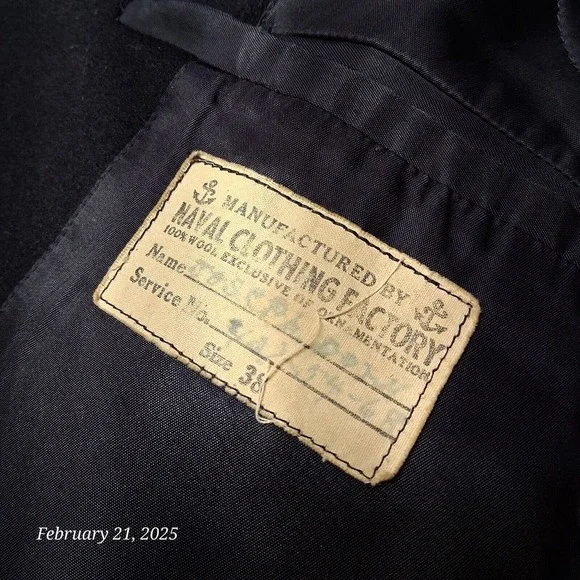 MANUFACTURED BY
NAVAL CLOTHING FACTORY
100% WOOL EXCLUSIVE OF ORNAMENTATION
Name JOSEPH
Service No.
Size 38
February 21, 2025